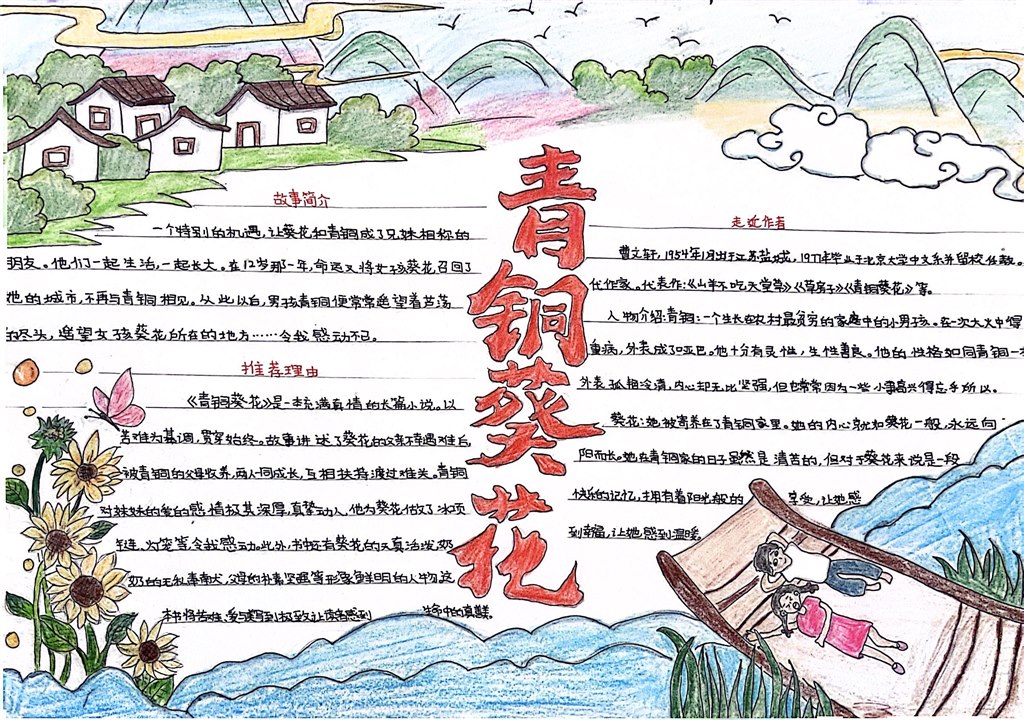 青铜葵花
故事简介
一个特别的机遇,让葵花和青铜成了兄妹相称的
朋友。他们一起生活,一起长大。在12岁那一年,命运又将女孩葵花召回了
她的城市,不再与青铜相见。从此以后,男孩青铜便常常遥望着芦荡
的尽头,遥望女孩葵花所在的地方……令我感动不已。
推荐理由
《青铜葵花》是一本充满真情的长篇小说。以
苦难为基调,贯穿始终。故事讲述了葵花的父亲不幸遇难后,
被青铜的父母收养,两人一同成长,互相扶持渡过难关。青铜
对妹妹的爱的感情极其深厚,真挚动人,他为葵花做了冰项
链、灯笼等,令我感动。此外,书中还有葵花的天真活泼,奶
奶的无私奉献,父母的朴素坚强等形象鲜明的人物。这
本书将苦难、爱与美写到极致,让读者感到
生命中的真善美。
走近作者
曹文轩,1954年1月出于江苏盐城,1977年毕业于北京大学中文系并留校任教。
代作家。代表作:《山羊不吃天堂草》《草房子》《青铜葵花》等。
人物介绍:青铜:一个生长在农村最贫穷的家庭中的小男孩。在一次大火中得
重病,外表成了哑巴。他十分有灵性,生性善良。他的性格如同青铜一
外表孤相冷清,内心却无比坚强,但也常常因为一些小事高兴得忘乎所以。
葵花:她被寄养在了青铜家里。她的内心就如葵花一般,永远向
阳而长。她在青铜家的日子虽然是清苦的,但对于葵花来说是一段
快乐的记忆,拥有着阳光般的 享受,让她感
到幸福,让她感到温暖。